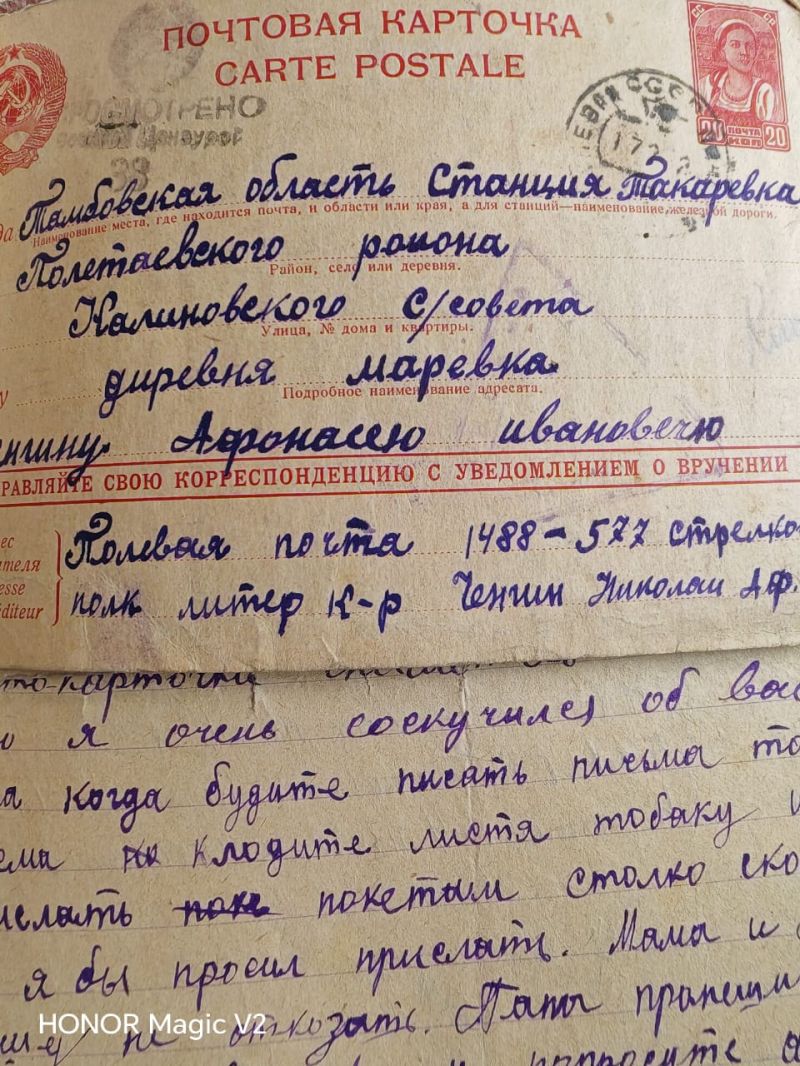 ПОЧТОВАЯ КАРТОЧКА
CARTE POSTALE
ПРОСМОТРЕНО
Военной Цензурой
33
СС СР
20 ПОЧТА 20
КОП
Тамбовская область Станция Такаревка
Наименование места, где находится почта, и области или края, а для станций—наименование железной дороги.
Полетаевского района
Район, село или деревня.
Калиновского С/совета
Улица, № дома и квартиры.
диревня маревка
Подробное наименование адресата.
енгину Афонасею ивановечю
РАВЛЯЙТЕ СВОЮ КОРРЕСПОНДЕНЦИЮ С УВЕДОМЛЕНИЕМ О ВРУЧЕНИИ
Полевая почта 1488-577 стрелко
полк литер К-р Ченгин Николаи Аф.
ес
ителя
esse
éditeur
то-карточки
ю я очень соскучился об вас
а когда будите писать письма то
ема клодите листя тобаку и
ислать покетым столко ско
я бы просил прислать. Мама и
шу не отказать. Папа
попросите
HONOR Magic V2